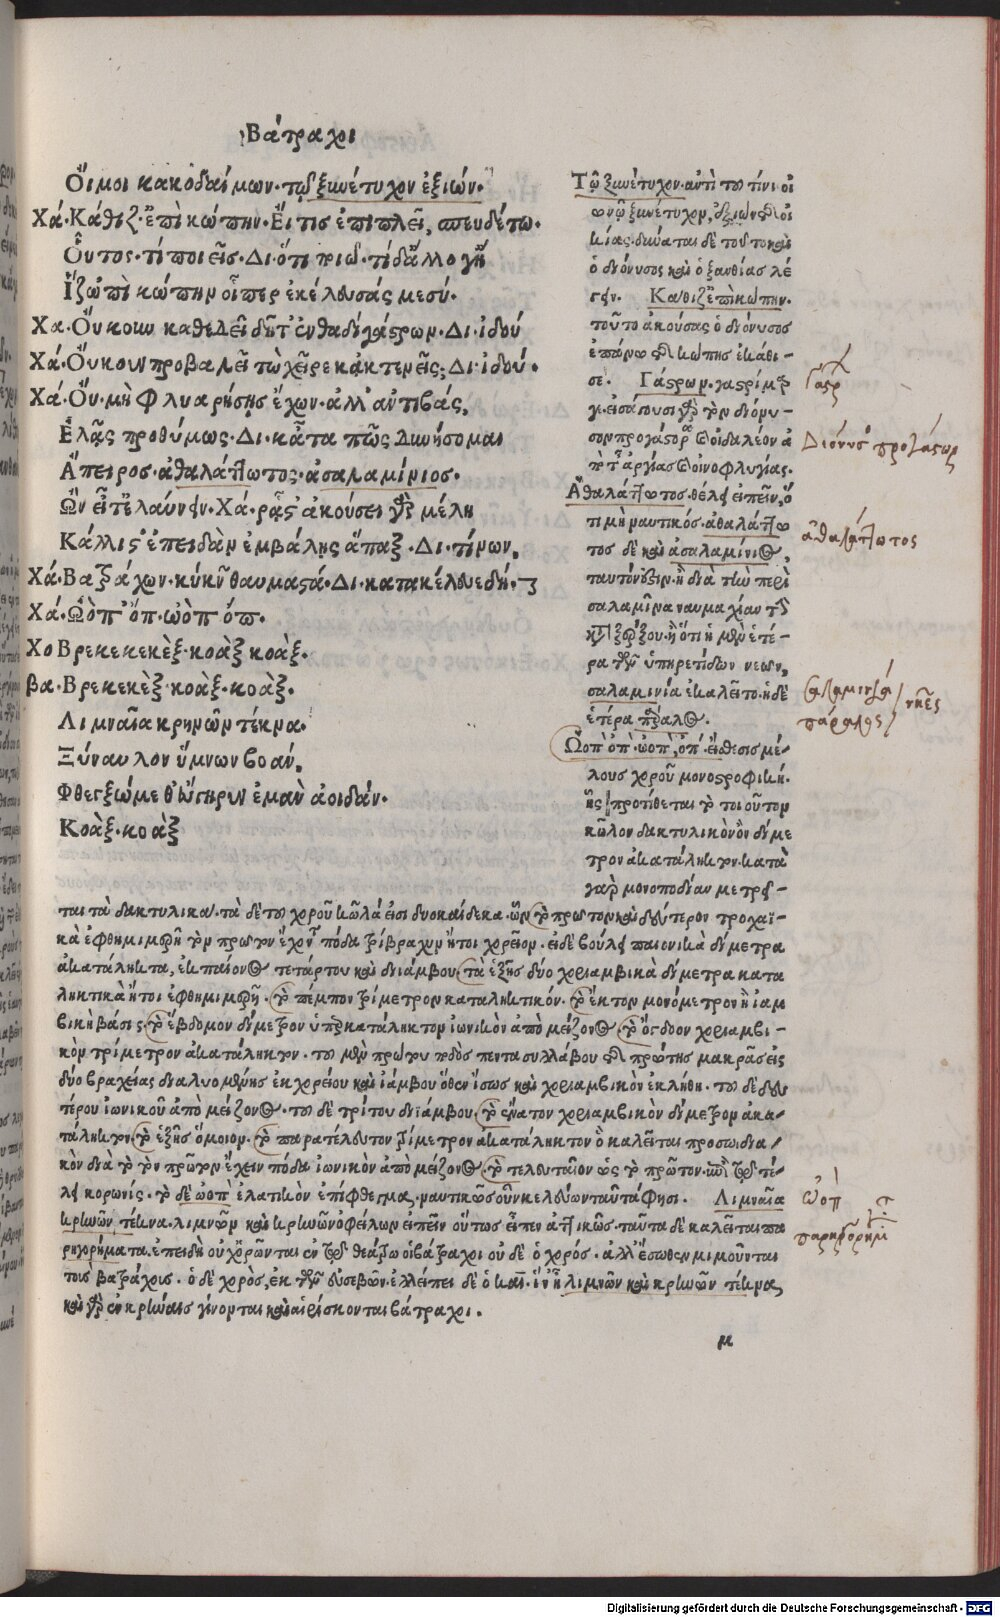 Βάτραχι
Οἴμοι κακοδαίμων. τῷ ξυνέτυχον ἐξιών.
Χά. Κάθιζ' ἐπὶ κώπην. Εἴ τις ἐπιπλεῖ, σπευδέτω.
Οὗτος. τί ποιεῖς. Δι. ὅ,τι ποιῶ. τί δ' ἄλλο γ' ἢ
Ἵζω 'πὶ κώπην οἷπερ ἐκέλευσάς με σύ.
Χα. Οὔκουν καθεδεῖ δῆτ' ἐνθαδὶ γάστρων. Δι. ἰδού
Χά. Οὔκουν προβαλεῖ τὼ χεῖρε κἀκτενεῖς; Δι. ἰδού.
Χά. Οὐ μὴ φλυαρήσῃς ἔχων. ἀλλ' ἀντιβὰς,
Ἐλᾷς προθύμως. Δι. κᾆτα πῶς δυνήσομαι
Ἄπειρος. ἀθαλάττωτος. ἀσαλαμίνιος.
Ὢν εἶτ' ἐλαύνειν. Χά. ῥᾷστ' ἀκούσει γὰρ μέλη
Κάλλιστ' ἐπειδὰν ἐμβάλῃς ἅπαξ. Δι. τίνων,
Χά. Βατράχων. κύκνων θαυμαστά. Δι. κατακέλευε δή.
Χά. Ὠὸπ ὄπ. ὠὸπ ὄπ.
Χο Βρεκεκεκὲξ. κοὰξ κοὰξ.
βα. Βρεκεκὲξ κοὰξ. κοὰξ.
Λιμναῖα κρηνῶν τέκνα.
Ξύναυλον ὕμνων βοάν,
Φθεγξώμεθ' εὔγηρυν ἐμὰν ἀοιδάν.
Κοὰξ. κοὰξ
Τῷ ξυνέτυχον. ἀντὶ τοῦ τίνι οἰ
κίας. δύναται δὲ τοῦτο καὶ
ὁ διόνυσος καὶ ὁ ξανθίας λέ
γειν. Κάθιζ' ἐπὶ κώπην.
τοῦτο ἀκούσας ὁ διόνυσος
ἐπάνω τῆς κώπης ἐκάθι-
σε. Γάστρων. γαστρίμαρ
γε. εἰσάγουσι γὰρ τὸν διόνυ-
σον προγάστορα καὶ οἰδαλέον ἀ
πὸ τῆς ἀργίας καὶ οἰνοφλυγίας.
Ἀθαλάττωτος. θέλει εἰπεῖν, ὅ
τι μὴ ναυτικός. ἀθαλάττω
τος δὲ καὶ ἀσαλαμίνιος,
ταυτόν ἐστιν. ἢ διὰ τὴν περὶ
σαλαμῖνα ναυμαχίαν τοῦ
ξέρξου. ἢ ὅτι ἡ μὲν ἑτέ-
ρα τῶν ὑπηρετίδων νεῶν,
σαλαμινία ἐκαλεῖτο. ἡ δὲ
ἑτέρα πάραλος.
Ὠοπ ὀπ. ὠοπ, ὀπ. εἴσθεσις μέ-
λους χοροῦ μονοστροφική.
ἧς προτίθεται τὸ τοιοῦτον
κῶλον δακτυλικὸν ὂν δίμε
τρον ἀκατάληκτον. κατὰ
γὰρ μονοποδίαν μετρεῖ-
ται τὰ δακτυλικά. τὰ δὲ τοῦ χοροῦ κῶλά εἰσι δυοκαίδεκα. ὧν τὸ πρῶτον καὶ δεύτερον τροχαϊ-
κὰ ἑφθημιμερῆ τὸν πρῶτον ἔχοντα πόδα τρίβραχυν ἤτοι χορεῖον. εἰ δὲ βούλει παιονικὰ δίμετρα
ἀκατάληκτα, ἐκ παίονος τετάρτου καὶ διιάμβου. τὰ ἑξῆς δύο χοριαμβικὰ δίμετρα κατα
ληκτικὰ ἤτοι ἑφθημιμερῆ. τὸ πέμπτον τρίμετρον καταληκτικόν. τὸ ἕκτον μονόμετρον ἢ ἰαμ
βικὴ βάσις. τὸ ἕβδομον δίμετρον ὑπερκατάληκτον ἰωνικὸν ἀπὸ μείζονος. τὸ ὄγδοον χοριαμβι-
κὸν τρίμετρον ἀκατάληκτον. τοῦ μὲν πρώτου ποδὸς πεντασυλλάβου τῆς πρώτης μακρᾶς εἰς
δύο βραχείας διαλυομένης ἐκ χορείου καὶ ἰάμβου ὅθεν ἴσως καὶ χοριαμβικὸν ἐκλήθη. τοῦ δὲ δευ
τέρου ἰωνικοῦ ἀπὸ μείζονος. τοῦ δὲ τρίτου διϊάμβου. τὸ ἔνατον χοριαμβικὸν δίμετρον ἀκα-
τάληκτον. τὸ ἑξῆς ὅμοιον. τὸ παρατέλευτον τρίμετρον ἀκατάληκτον ὃ καλεῖται προσωδια-
κὸν διὰ τὸ τὸν πρῶτον ἔχειν πόδα ἰωνικὸν ἀπὸ μείζονος. τὸ τελευταῖον ὡς τὸ πρῶτον. ἐπὶ τῷ τέ-
λει κορωνίς. τὸ δὲ ὠοπ ἐλατικὸν ἐπίφθεγμα, ναυτικῶς οὖν κελεύων ταῦτά φησι. Λιμναῖα
κρηνῶν τέκνα. λιμνῶν καὶ κρηνῶν ὀφείλων εἰπεῖν οὕτως εἶπεν ἀττικῶς. ταῦτα δὲ καλεῖται πα
ρηγορήματα. ἐπειδὴ οὐχ ὁρῶνται ἐν τῷ θεάτρῳ οἱ βάτραχοι οὐδὲ ὁ χορός. ἀλλ' ἔσωθεν μιμοῦνται
τοὺς βατράχους. ὁ δὲ χορὸς, ἐκ τῶν εὐσεβῶν. ἐλλείπει δὲ ὁ καί. ἵν' ᾖ λιμνῶν καὶ κρηνῶν τέκνα,
καὶ γὰρ ἐν κρήναις γίνονται καὶ εὑρίσκονται βάτραχοι.
μ
Γάστρ
Διόνυσος προγάστωρ
ἀθαλάττωτος
Σαλαμινία
πάραλος
νῆες
ὠόπ
Digitalisierung gefördert durch die Deutsche Forschungsgemeinschaft - DFG